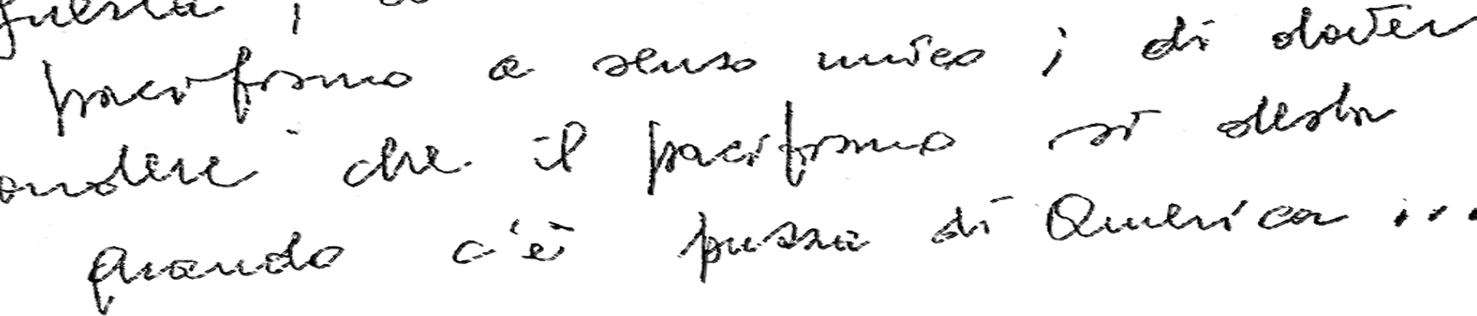 pacifismo a senso unico ; di dover
ondere che il pacifismo si desta
quando c'è puzza di America ...